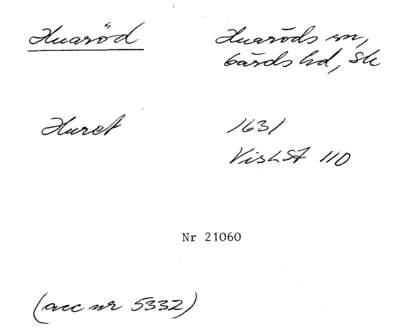 Huaröd
Huaröds sn,
Gärds hd, Sk
Huret
1631
VisLSt 110
Nr 21060
(acc nr 5332)